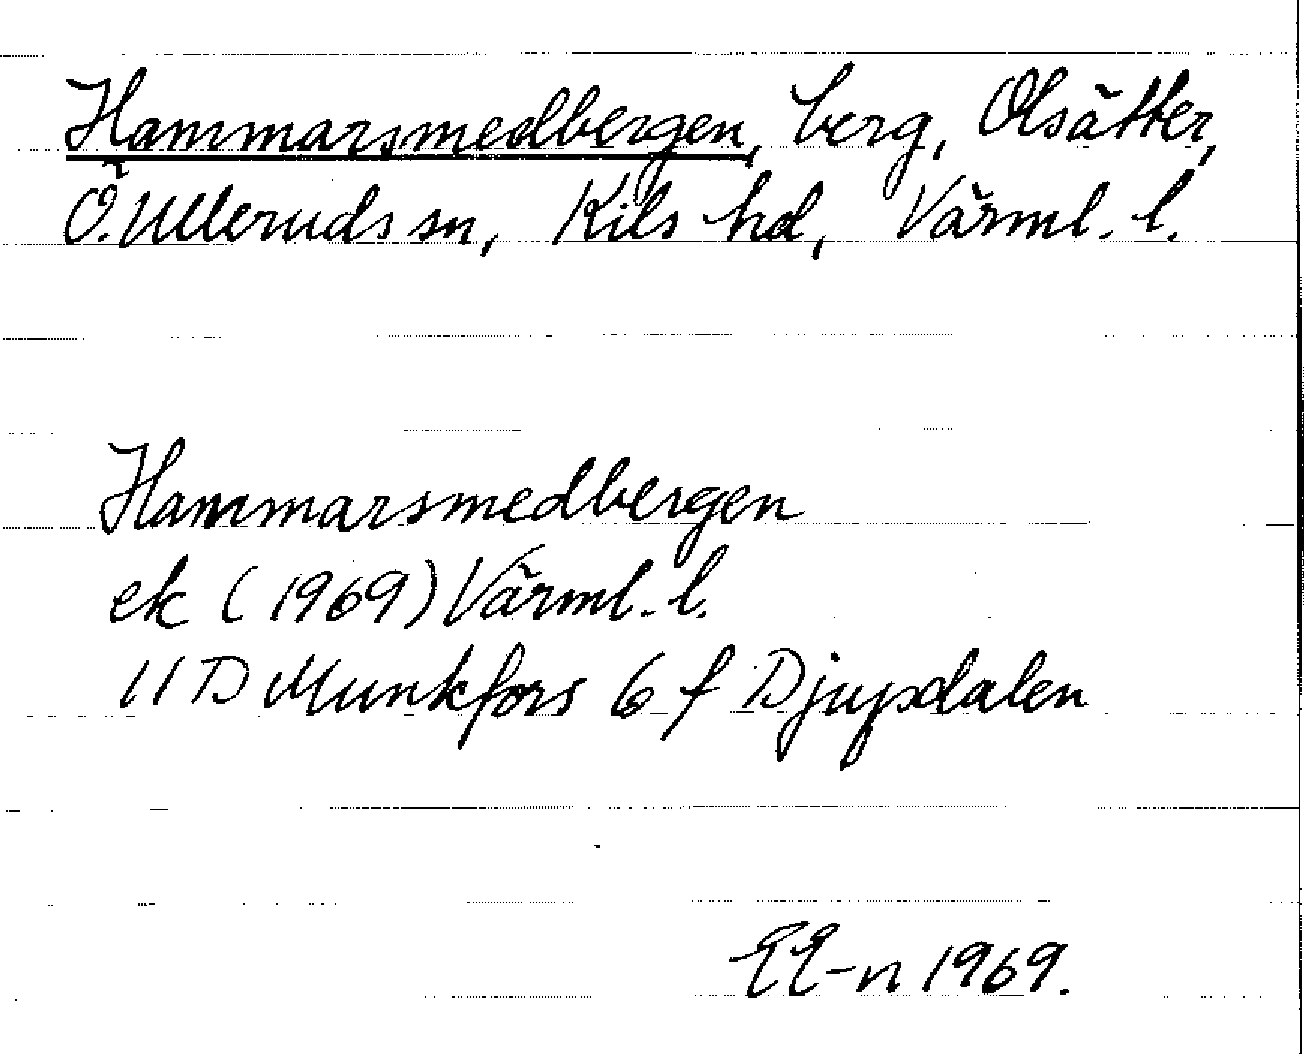 Hammarsmedbergen, berg, Olsätter,
Ö. Ulleruds sn, Kils hd, Värml. l.
Hammarsmedbergen
ek (1969) Värml. l.
11 D Munkfors 6 f Djupdalen
EE-n 1969.